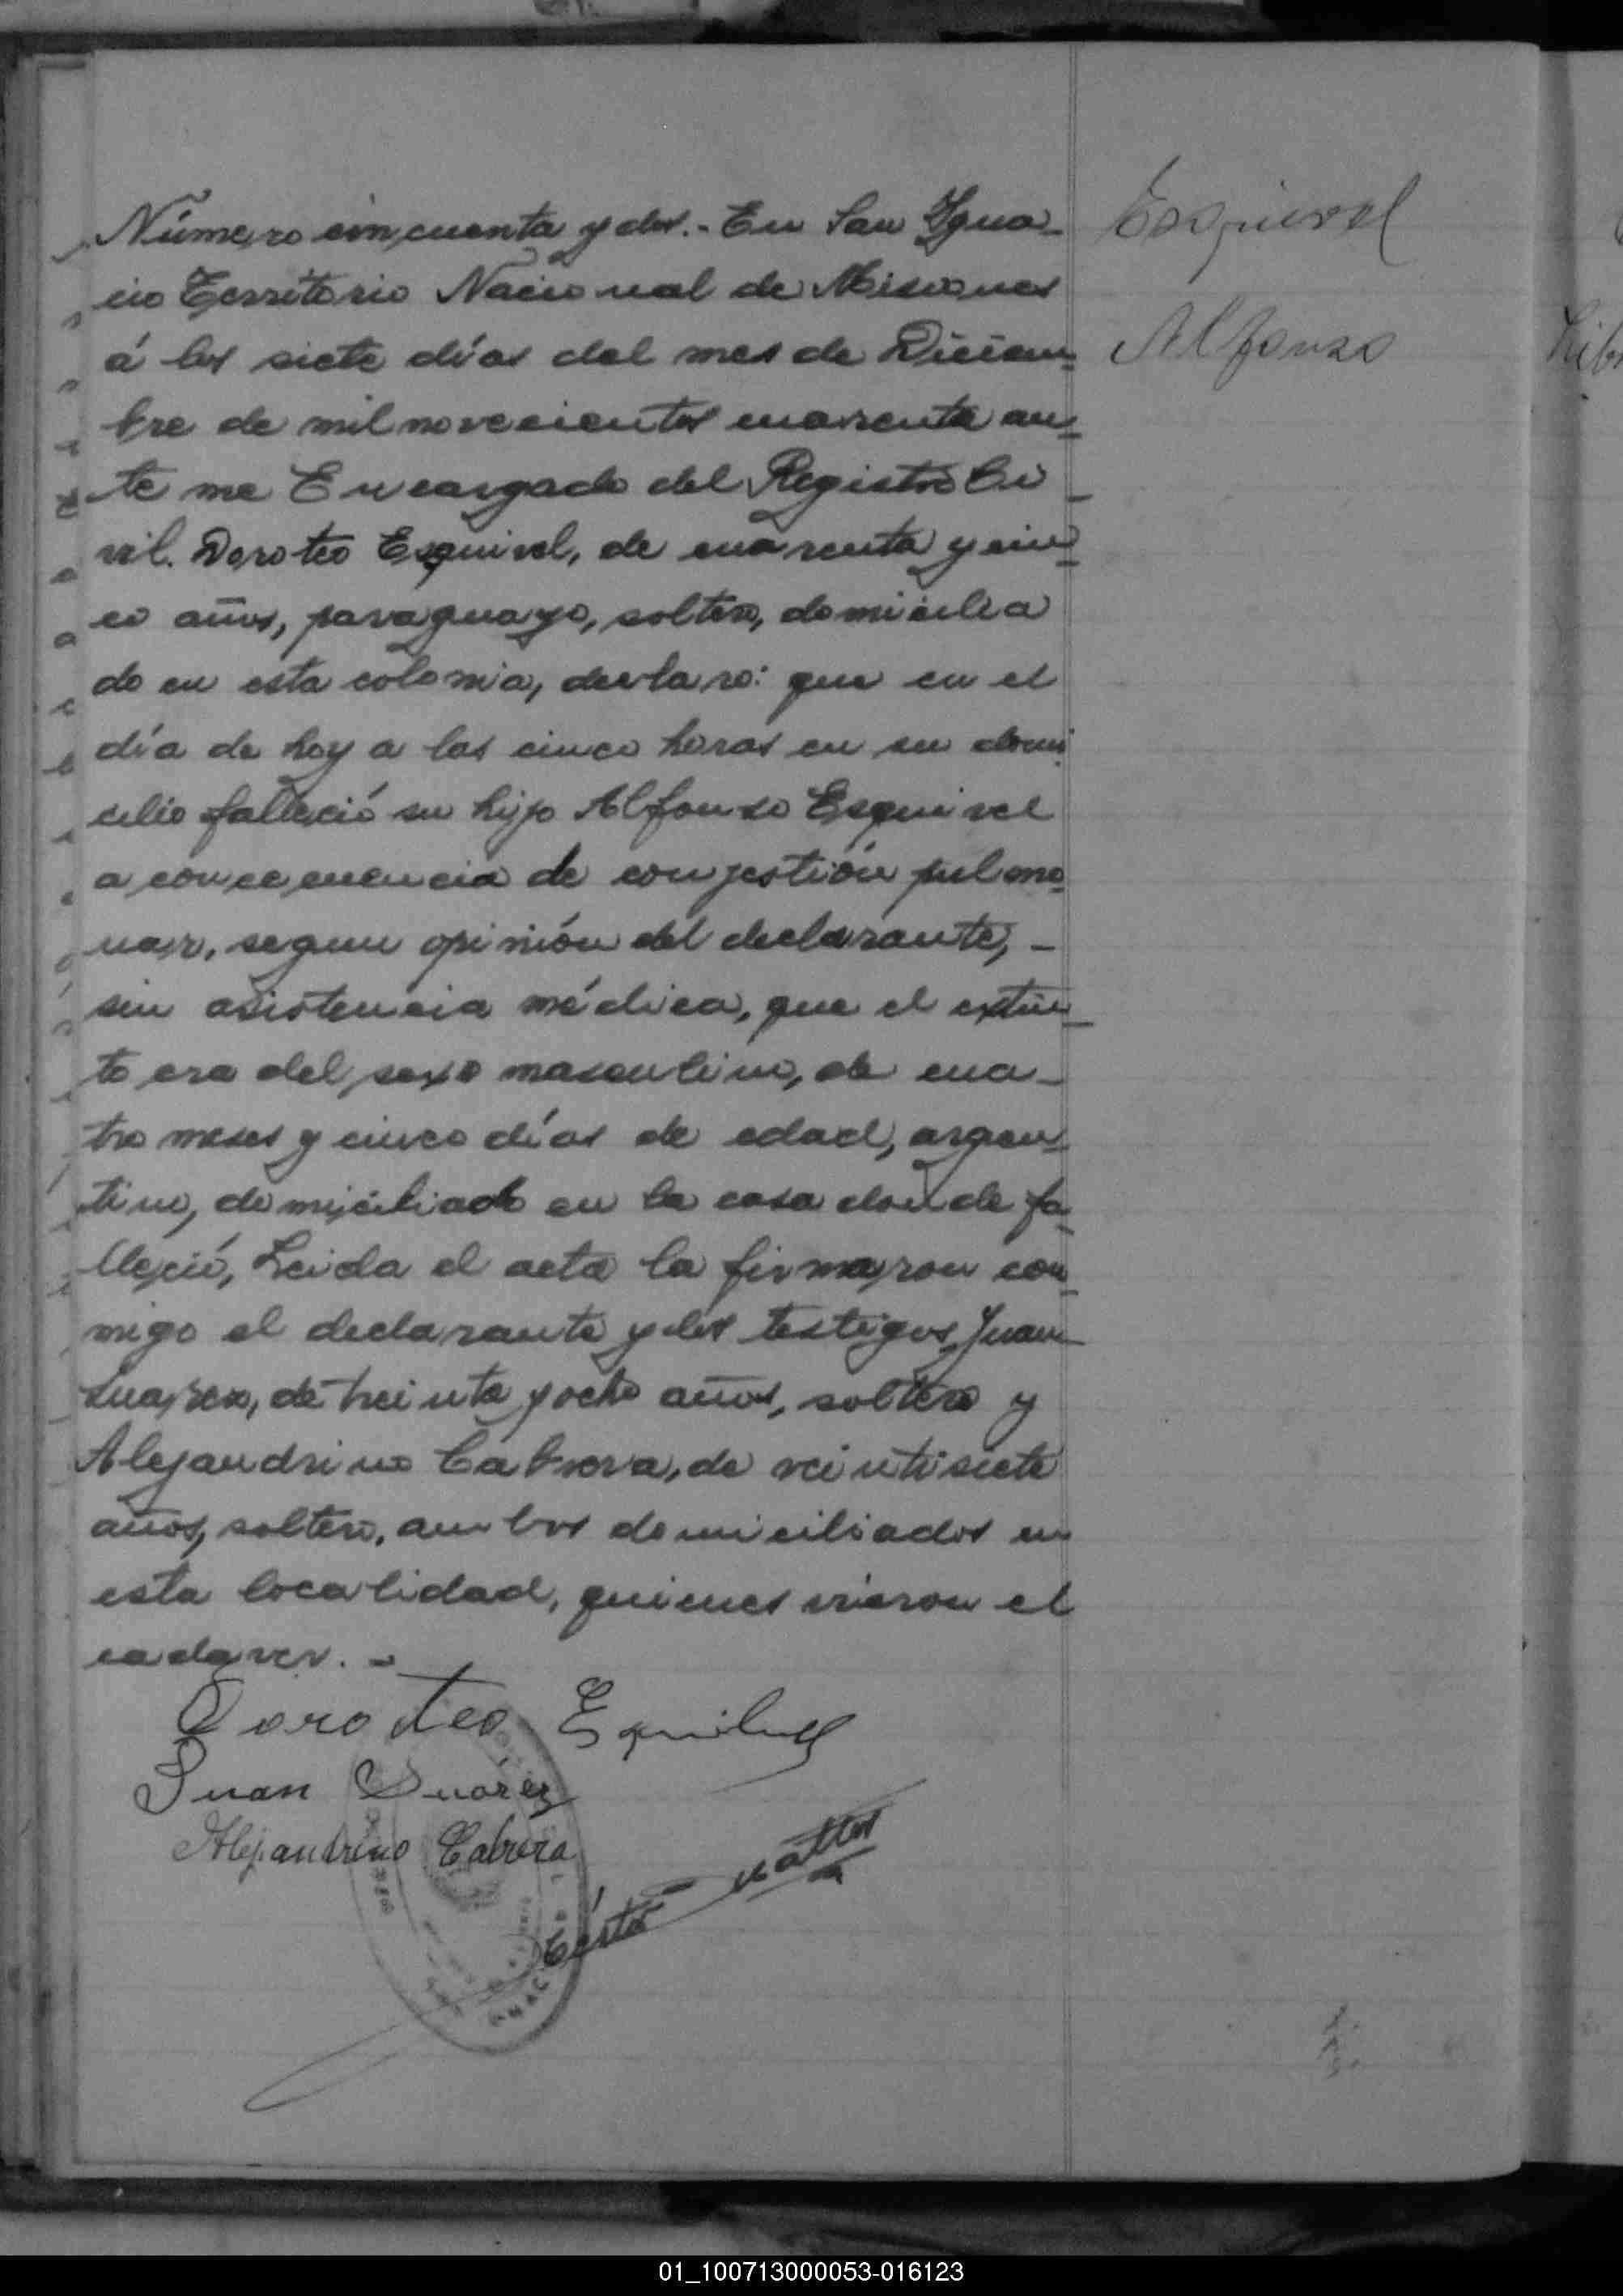 Esquivel
Alfonso
Número cincuenta y dos.- En San Igna-
cio Territorio Nacional de Misiones
á los siete días del mes de Diciem-
bre de mil novecientos cuarenta an-
te me Encargado del Registro Ci-
vil. Doroteo Esquivel, de cuarenta y cin-
co años, paraguayo, soltero, domicilia
do en esta colonia, declaro: que en el
día de hoy a las cinco horas en su domi
cilio falleció su hijo Alfonso Esquivel
a concecuencia de conjestión pulmo-
nar, segun opinión del declarante, -
sin asistencia médica, que el extin-
to era del sexo masculino, de cua-
tro meses y cinco días de edad, argen-
tino, domiciliado en la casa donde fa-
lleció, Leida el acta la firmaron con-
migo el declarante y los testigos Juan
Suarez, de treinta y ocho años, soltero y
Alejandrino Cabrera, de veintisiete
años, soltero, ambos domiciliados en
esta localidad, quienes vieron el
cadaver. -
Doroteo
Juan Suárez
Alejandrino Cabrera
01_100713000053-016123